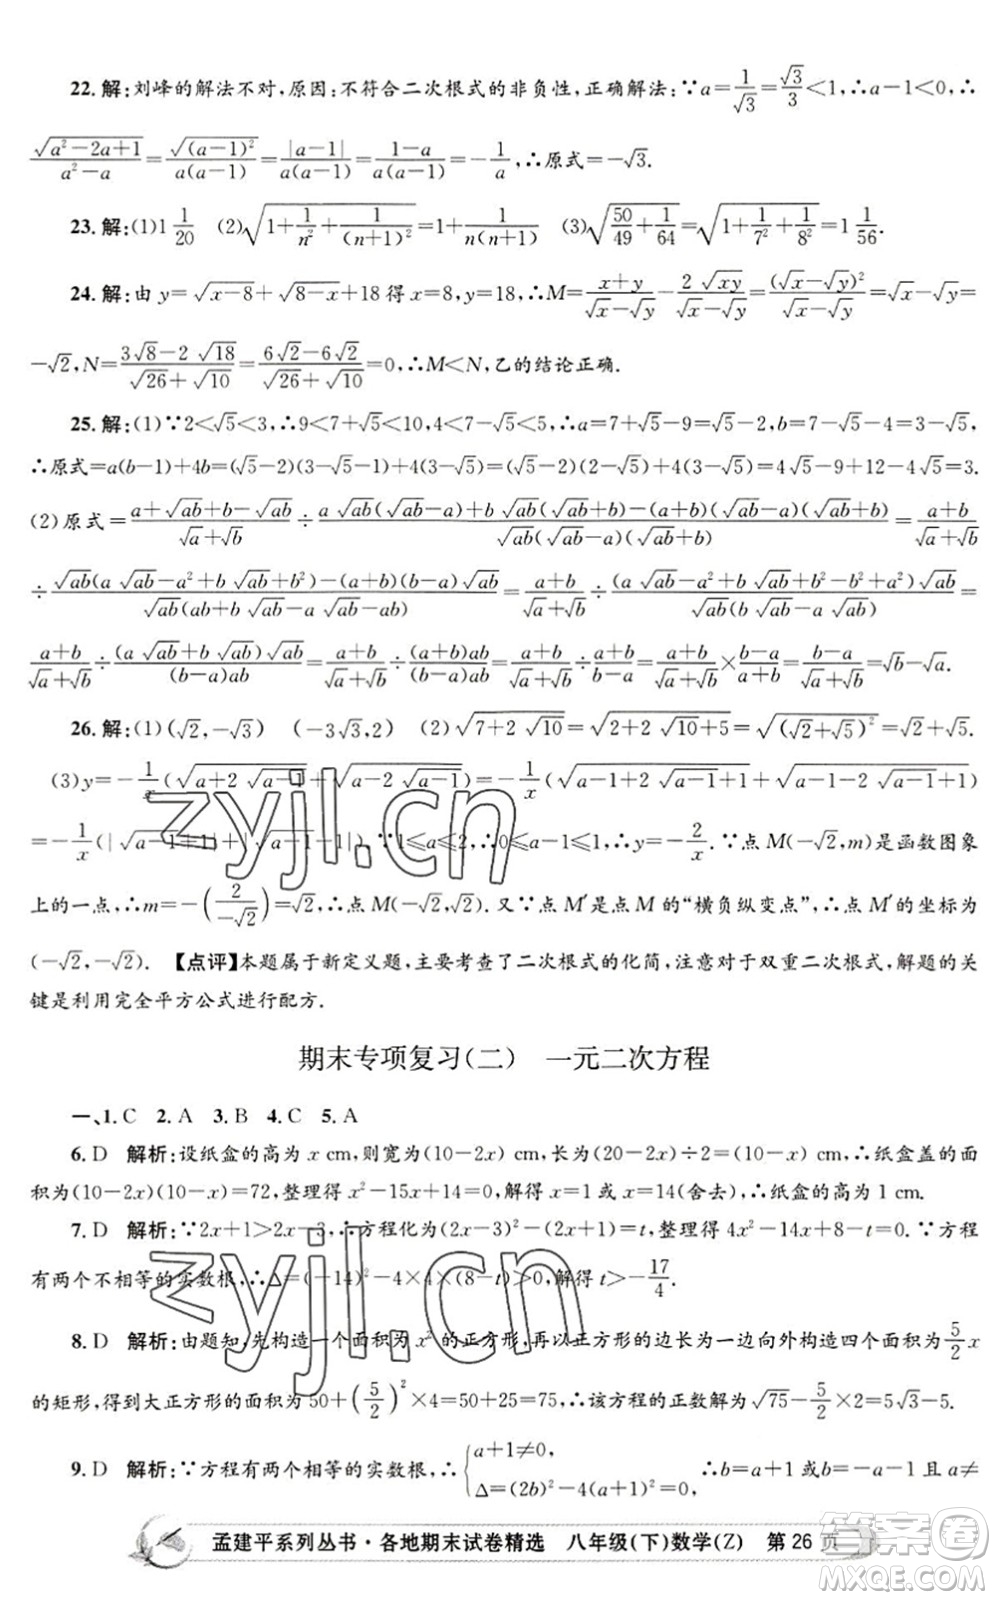 22. 解:刘峰的解法不对,原因:不符合二次根式的非负性,正确解法:∵a=1/√3=√3/3<1,∴a−1<0,∴
√(a²−2a+1)/(a²−a)=√((a−1)²)/(a(a−1))=|a−1|/(a(a−1))=(1−a)/(a(a−1))=−1/a,∴原式=−√3.
23. 解:(1)1 1/20 (2)√(1+1/n²+1/(n+1)²)=1+1/(n(n+1)) (3)√(50/49+1/64)=√(1+1/7²+1/8²)=1 1/56.
24. 解:由 y=√(x−8)+√(8−x)+18 得 x=8,y=18,∴M=(x+y)/(√x−√y)−2√(xy)/(√x−√y)=(√x−√y)²/(√x−√y)=√x−√y=
−√2,N=(3√8−2√18)/(√26+√10)=(6√2−6√2)/(√26+√10)=0,∴M<N,乙的结论正确.
25. 解:(1)∵2<√5<3,∴9<7+√5<10,4<7−√5<5,∴a=7+√5−9=√5−2,b=7−√5−4=3−√5,
∴原式=a(b−1)+4b=(√5−2)(3−√5−1)+4(3−√5)=(√5−2)(2−√5)+4(3−√5)=4√5−9+12−4√5=3.
(2)原式=(a+√ab+b−√ab)/(√a+√b)÷(a√ab(√ab−a)+b√ab(√ab+b)−(a+b)(√ab−a)(√ab+b))/(√ab(√ab−a)(√ab+b))=(a+b)/(√a+√b)
÷(√ab(a√ab−a²+b√ab+b²)−(a+b)(b−a)√ab)/(√ab(ab+b√ab−a√ab−ab))=(a+b)/(√a+√b)÷(√ab(a√ab−a²+b√ab+b²−b²+a²))/(√ab(b√ab−a√ab))=
(a+b)/(√a+√b)÷((a√ab+b√ab)√ab)/((b−a)ab)=(a+b)/(√a+√b)÷((a+b)ab)/((b−a)ab)=(a+b)/(√a+√b)÷(a+b)/(b−a)=(a+b)/(√a+√b)×(b−a)/(a+b)=√b−√a.
26. 解:(1)(√2,−√3) (−3√3,2) (2)√(7+2√10)=√(2+2√10+5)=√((√2+√5)²)=√2+√5.
(3)y=−1/x(√(a+2√(a−1))+√(a−2√(a−1)))=−1/x(√(a−1+2√(a−1)+1)+√(a−1−2√(a−1)+1))
=−1/x(|√(a−1)+1|+|√(a−1)−1|).∵1≤a≤2,∴0≤a−1≤1,∴y=−2/x.∵点 M(−√2,m)是函数图象
上的一点,∴m=−(2/−√2)=√2,∴点 M(−√2,√2).又∵点 M′是点 M 的“横负纵变点”,∴点 M′的坐标为
(−√2,−√2). 【点评】本题属于新定义题,主要考查了二次根式的化简,注意对于双重二次根式,解题的关
键是利用完全平方公式进行配方.
期末专项复习(二) 一元二次方程
一、1. C 2. A 3. B 4. C 5. A
6. D 解析:设纸盒的高为 x cm,则宽为(10−2x)cm,长为(20−2x)÷2=(10−x)cm,∴纸盒盖的面
积为(10−2x)(10−x)=72,整理得 x²−15x+14=0,解得 x=1 或 x=14(舍去),∴纸盒的高为 1 cm.
7. D 解析:∵2x+1>2x−3,∴方程化为(2x−3)²−(2x+1)=t,整理得 4x²−14x+8−t=0.∵方程
有两个不相等的实数根,∴Δ=(−14)²−4×4×(8−t)>0,解得 t>−17/4.
8. D 解析:由题知,先构造一个面积为 x² 的正方形,再以正方形的边长为一边向外构造四个面积为5/2x
的矩形,得到大正方形的面积为 50+(5/2)²×4=50+25=75,∴该方程的正数解为√75−5/2×2=5√3−5.
9. D 解析:∵方程有两个相等的实数根,∴{a+1≠0, Δ=(2b)²−4(a+1)²=0, ∴b=a+1 或b=−a−1 且 a≠
孟建平系列丛书·各地期末试卷精选 八年级(下)数学(Z) 第 26 页
zyjl.cn
zyjl.cn
答案圈
MXQE.COM